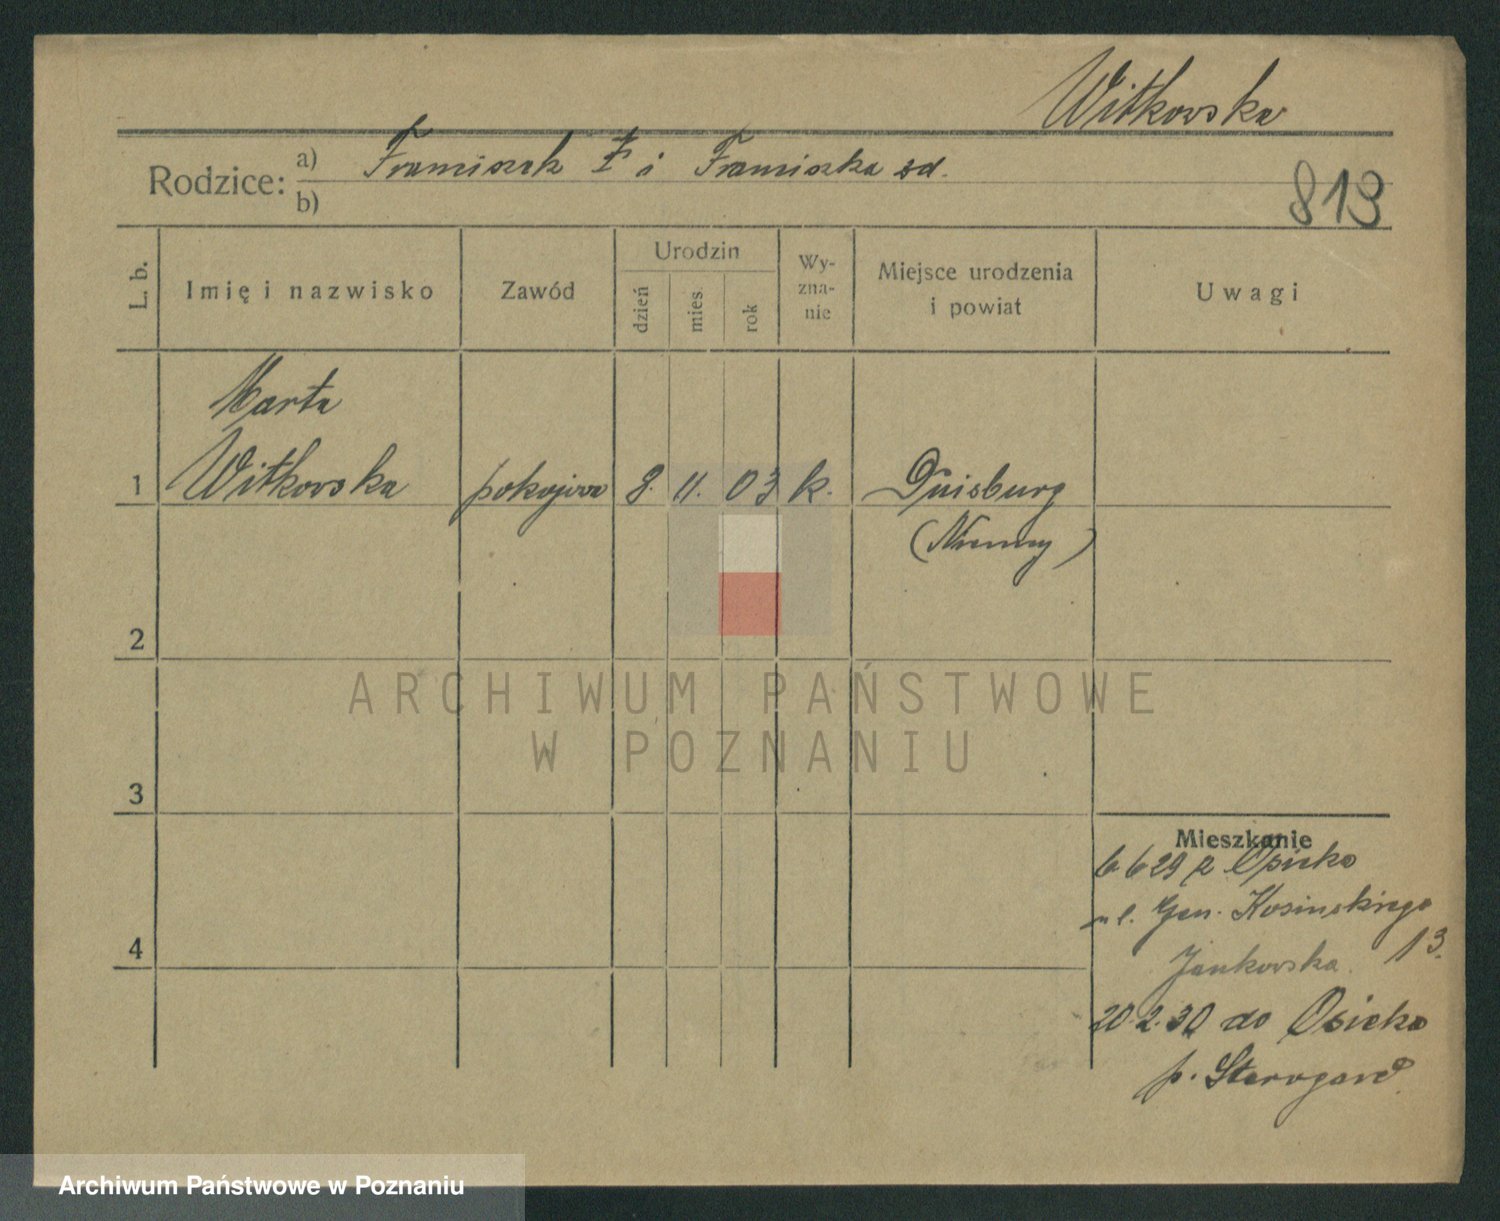 Witkowska
Rodzice: a) Franciszek † i Franciszka zd.
b)
813
L. b.
Imię i nazwisko
Zawód
Urodzin
dzień
mies.
rok
Wy-
zna-
nie
Miejsce urodzenia
i powiat
Uwagi
Marta
1 Witkowska pokojowa 8. 11. 03 k. Duisburg
(Niemcy)
2
ARCHIWUM PAŃSTWOWE
W POZNANIU
3
Mieszkanie
6 6 29 z Osieka
ul. Gen. Kosińskiego
13.
Jankowska
4
20.2.30 do Osieka
p. Starogard
Archiwum Państwowe w Poznaniu